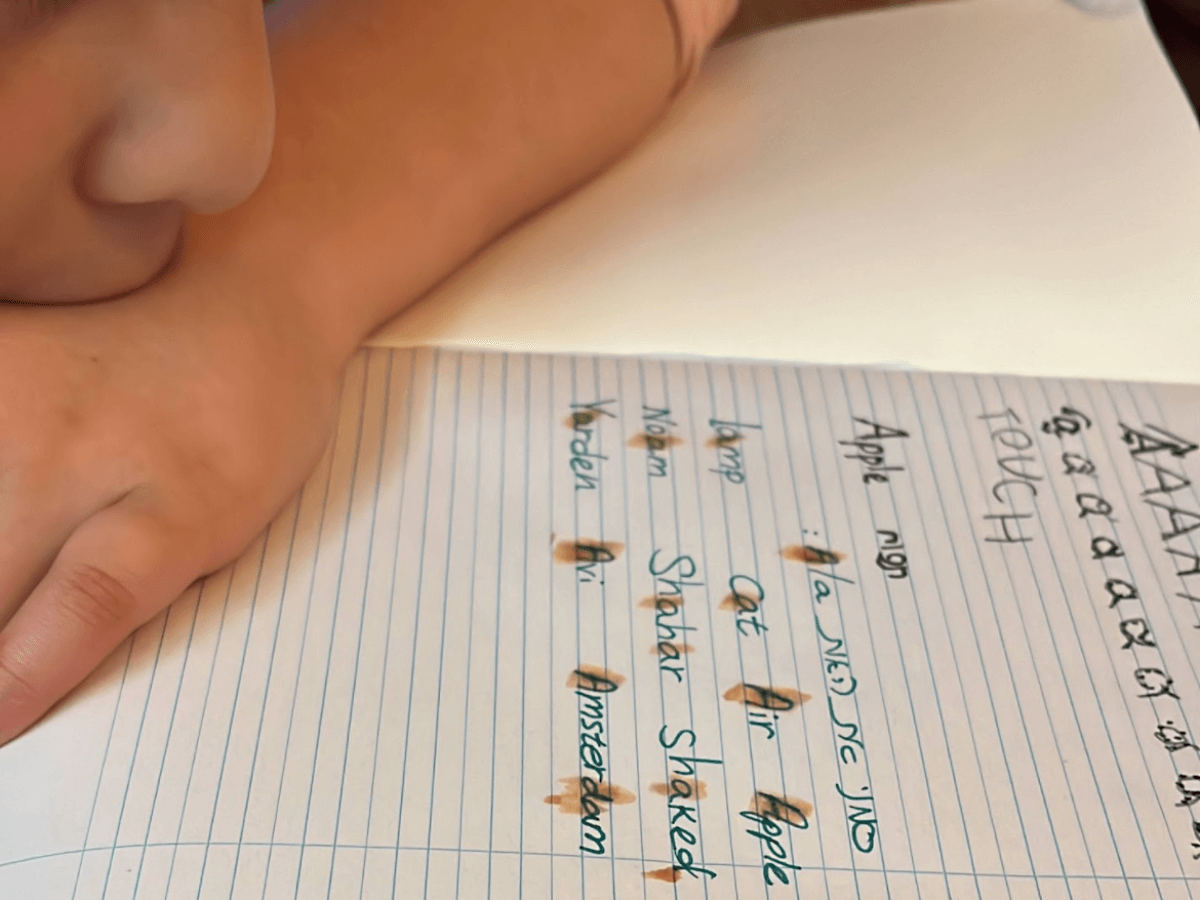 AAAA
a a a a a a a a
TOUCH
Apple תפוח
סמני את האות A/a:
lamp Cat Air Apple
Noam Shahar Shaked
Yarden Avi Amsterdam